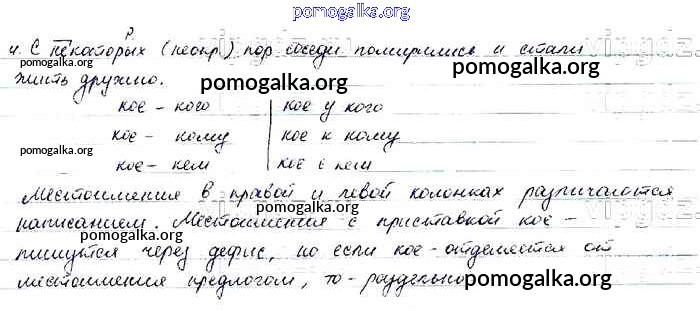 pomogalka.org
Р.
4. С некоторых (неопр.) пор соседи помирились и стали
жить дружно.
pomogalka.org
pomogalka.org
кое - кого | кое у кого
кое - кому | кое к кому
pomogalka.org
pomogalka.org
кое - кем | кое с кем
Местоимения в правой и левой колонках различаются
pomogalka.org
написанием. Местоимения с приставкой кое -
pomogalka.org
пишутся через дефис, но если кое - отделяется от
местоимения предлогом, то - раздельно
pomogalka.org